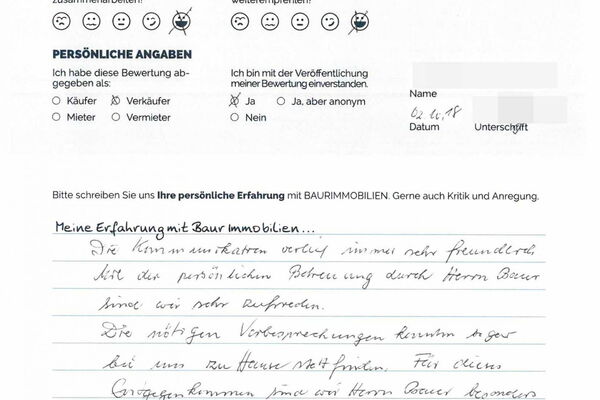 zusammenarbeiten? weiterempfehlen?
PERSÖNLICHE ANGABEN
Ich habe diese Bewertung ab-
gegeben als:
Käufer Verkäufer
Mieter Vermieter
Ich bin mit der Veröffentlichung
meiner Bewertung einverstanden.
Ja Ja, aber anonym
Nein
Name
02.10.18
Datum Unterschrift
Bitte schreiben Sie uns Ihre persönliche Erfahrung mit BAURIMMOBILIEN. Gerne auch Kritik und Anregung.
Meine Erfahrung mit Baur Immobilien...
Die Kommunikation verlief immer sehr freundlich
Mit der persönlichen Betreuung durch Herrn Baur
sind wir sehr zufrieden.
Die nötigen Vorbesprechungen konnten sogar
bei uns zu Hause stattfinden. Für dieses
Entgegenkommen sind wir Herrn Baur besonders